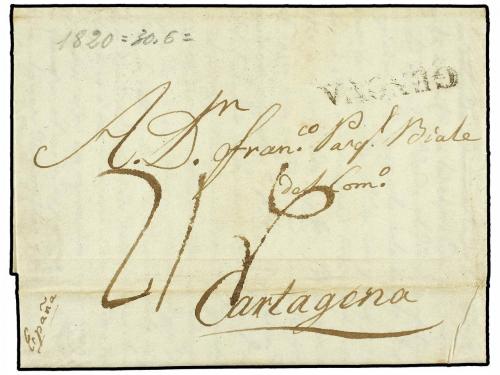 1820 = 30.6 =
GENOVA
A. D.n Fran.co Pasq.l Biale
del Com.o
Cartagena
España